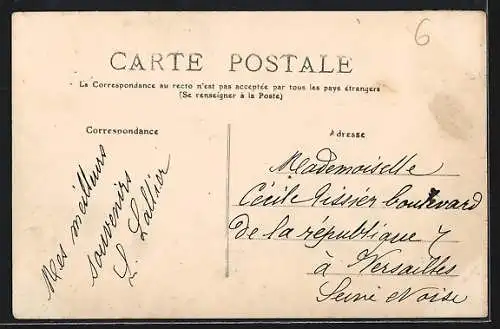 6
CARTE POSTALE
La Correspondance au recto n'est pas acceptée par tous les pays étrangers
(Se renseigner à la Poste)
Correspondance
Mes meilleurs
souvenirs
L. Lallier
Adresse
Mademoiselle
Cécile Tissier boulevard
de la république 7
à Versailles
Seine et Oise